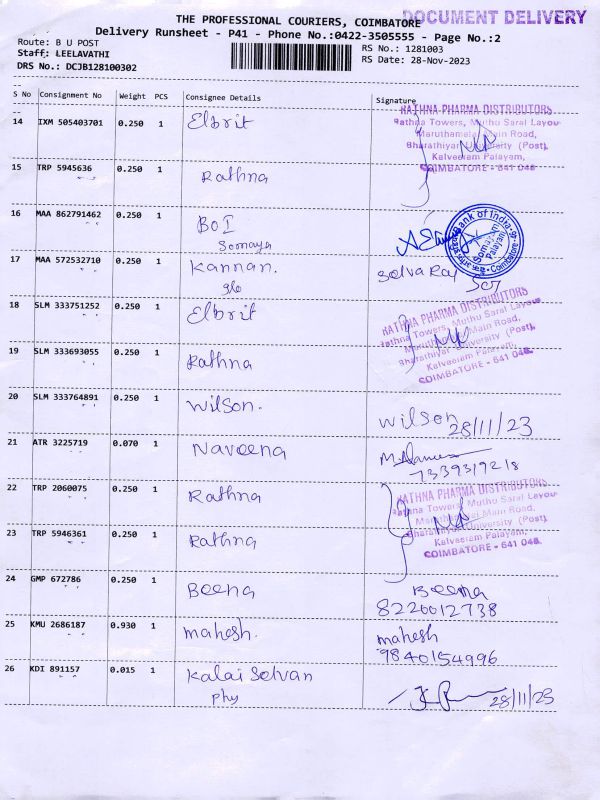 DOCUMENT DELIVERY
THE PROFESSIONAL COURIERS, COIMBATORE
Delivery Runsheet - P41 - Phone No.:0422-3505555 - Page No.:2
Route: B U POST
RS No.: 1281003
Staff: LEELAVATHI
RS Date: 28-Nov-2023
DRS No.: DCJB128100302
S No Consignment No Weight PCS Consignee Details Signature
14 IXM 505403701 0.250 1 Elbrit
RATHNA PHARMA DISTRIBUTORS
Rathna Towers, Muthu Saral Layou
Maruthamalai Main Road,
Bharathiyar University (Post),
Kalveeram Palayam,
COIMBATORE - 641 046.
15 TRP 5945636 0.250 1 Rathna
16 MAA 862791462 0.250 1 BOI
Somaya
Bank of India
Somayam
Palayam
Coimbatore
17 MAA 572532710 0.250 1 Kannan. Selva Raj
18 SLM 333751252 0.250 1 Elbrit
RATHNA PHARMA DISTRIBUTORS
Rathna Towers, Muthu Saral Layou
Maruthamalai Main Road,
Bharathiyar University (Post),
Kalveeram Palayam,
COIMBATORE - 641 046.
19 SLM 333693055 0.250 1 Rathna
20 SLM 333764891 0.250 1 Wilson. Wilson 28/11/23
21 ATR 3225719 0.070 1 Naveena
7339319218
22 TRP 2060075 0.250 1 Rathna
RATHNA PHARMA DISTRIBUTORS
Rathna Towers, Muthu Saral Layou
Maruthamalai Main Road,
Bharathiyar University (Post),
Kalveeram Palayam,
COIMBATORE - 641 046.
23 TRP 5946361 0.250 1 Rathna
24 GMP 672786 0.250 1 Beena Beena
8220012738
25 KMU 2686187 0.930 1 mahesh. mahesh
9840154996
26 KDI 891157 0.015 1 Kalai Selvan
Phy 28/11/23